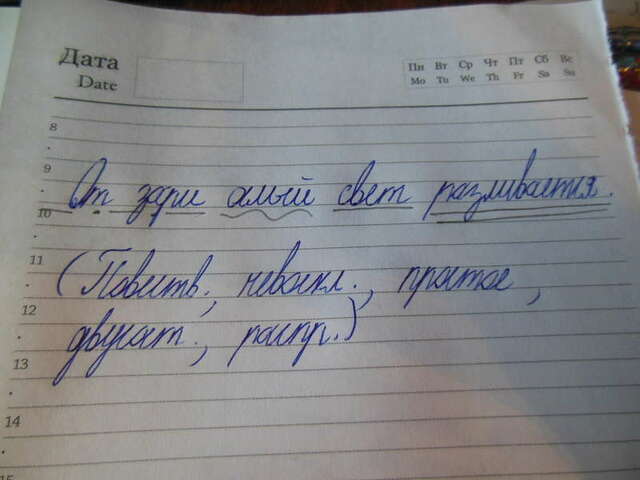 Дата
Date
Пн Вт Ср Чт Пт Сб Вс
Mo Tu We Th Fr Sa Su
8
9
От зари алый свет разливается.
10
11
(Повеств., невоскл., простое,
12
двусост., распр.)
13
14
15